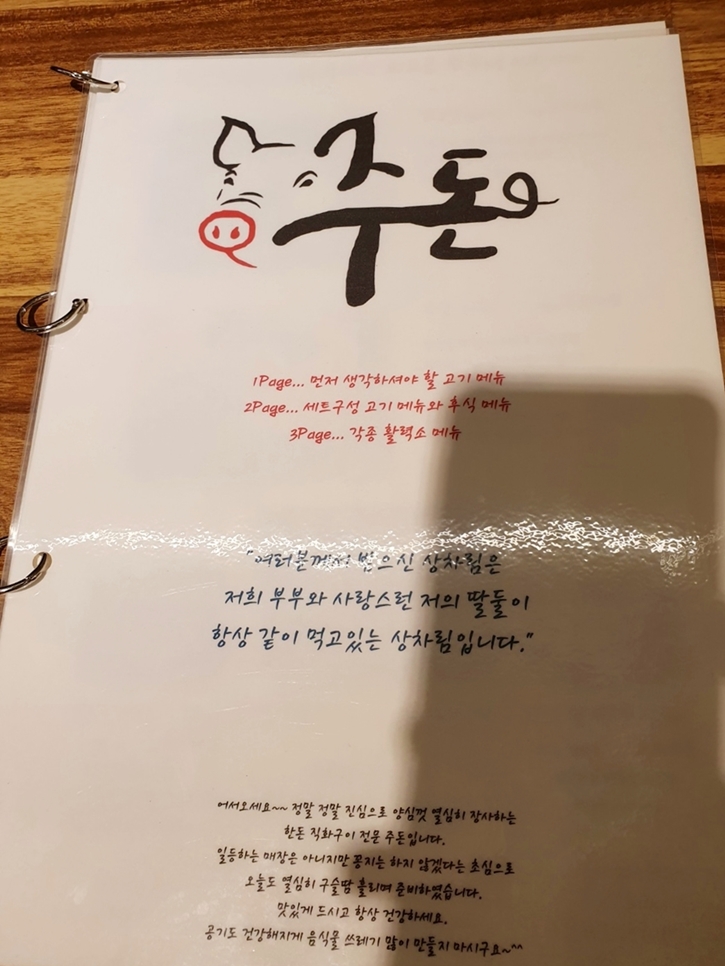 주돈
1Page... 먼저 생각하셔야 할 고기 메뉴
2Page... 세트구성 고기 메뉴와 후식 메뉴
3Page... 각종 활력소 메뉴
"여러분께서 받으신 상차림은
저희 부부와 사랑스런 저의 딸둘이
항상 같이 먹고있는 상차림입니다."
어서오세요~~ 정말 정말 진심으로 양심껏 열심히 장사하는
한돈 직화구이 전문 주돈입니다.
일등하는 매장은 아니지만 꽁지는 하지 않겠다는 초심으로
오늘도 열심히 구슬땀 흘리며 준비하였습니다.
맛있게 드시고 항상 건강하세요.
공기도 건강해지게 음식물 쓰레기 많이 만들지 마시구요~^^